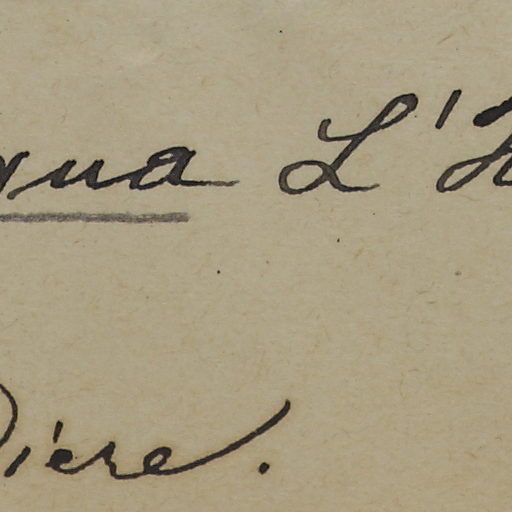 gua L'H
ière.